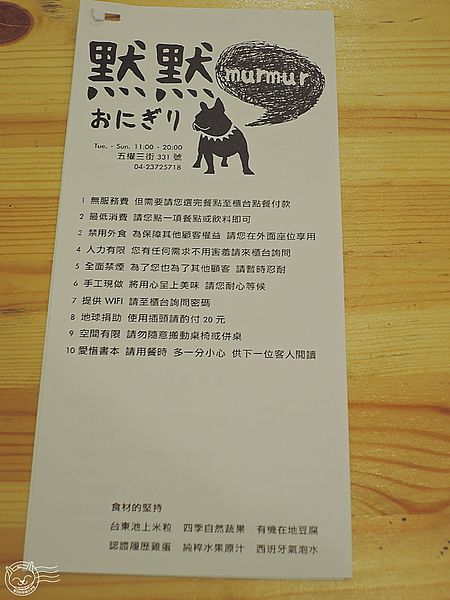 默默
murmur
おにぎり
Tue. - Sun. 11:00 - 20:00
五權三街 331 號
04-23725718
1 無服務費 但需要請您選完餐點至櫃台點餐付款
2 最低消費 請您點一項餐點或飲料即可
3 禁用外食 為保障其他顧客權益 請您在外面座位享用
4 人力有限 您有任何需求不用害羞請來櫃台詢問
5 全面禁煙 為了您也為了其他顧客 請暫時忍耐
6 手工現做 將用心呈上美味 請您耐心等候
7 提供 WIFI 請至櫃台詢問密碼
8 地球捐助 使用插頭請酌付 20 元
9 空間有限 請勿隨意搬動桌椅或併桌
10 愛惜書本 請用餐時 多一分小心 供下一位客人閱讀
食材的堅持
台東池上米粒 四季自然蔬果 有機在地豆腐
認證履歷雞蛋 純粹水果原汁 西班牙氣泡水